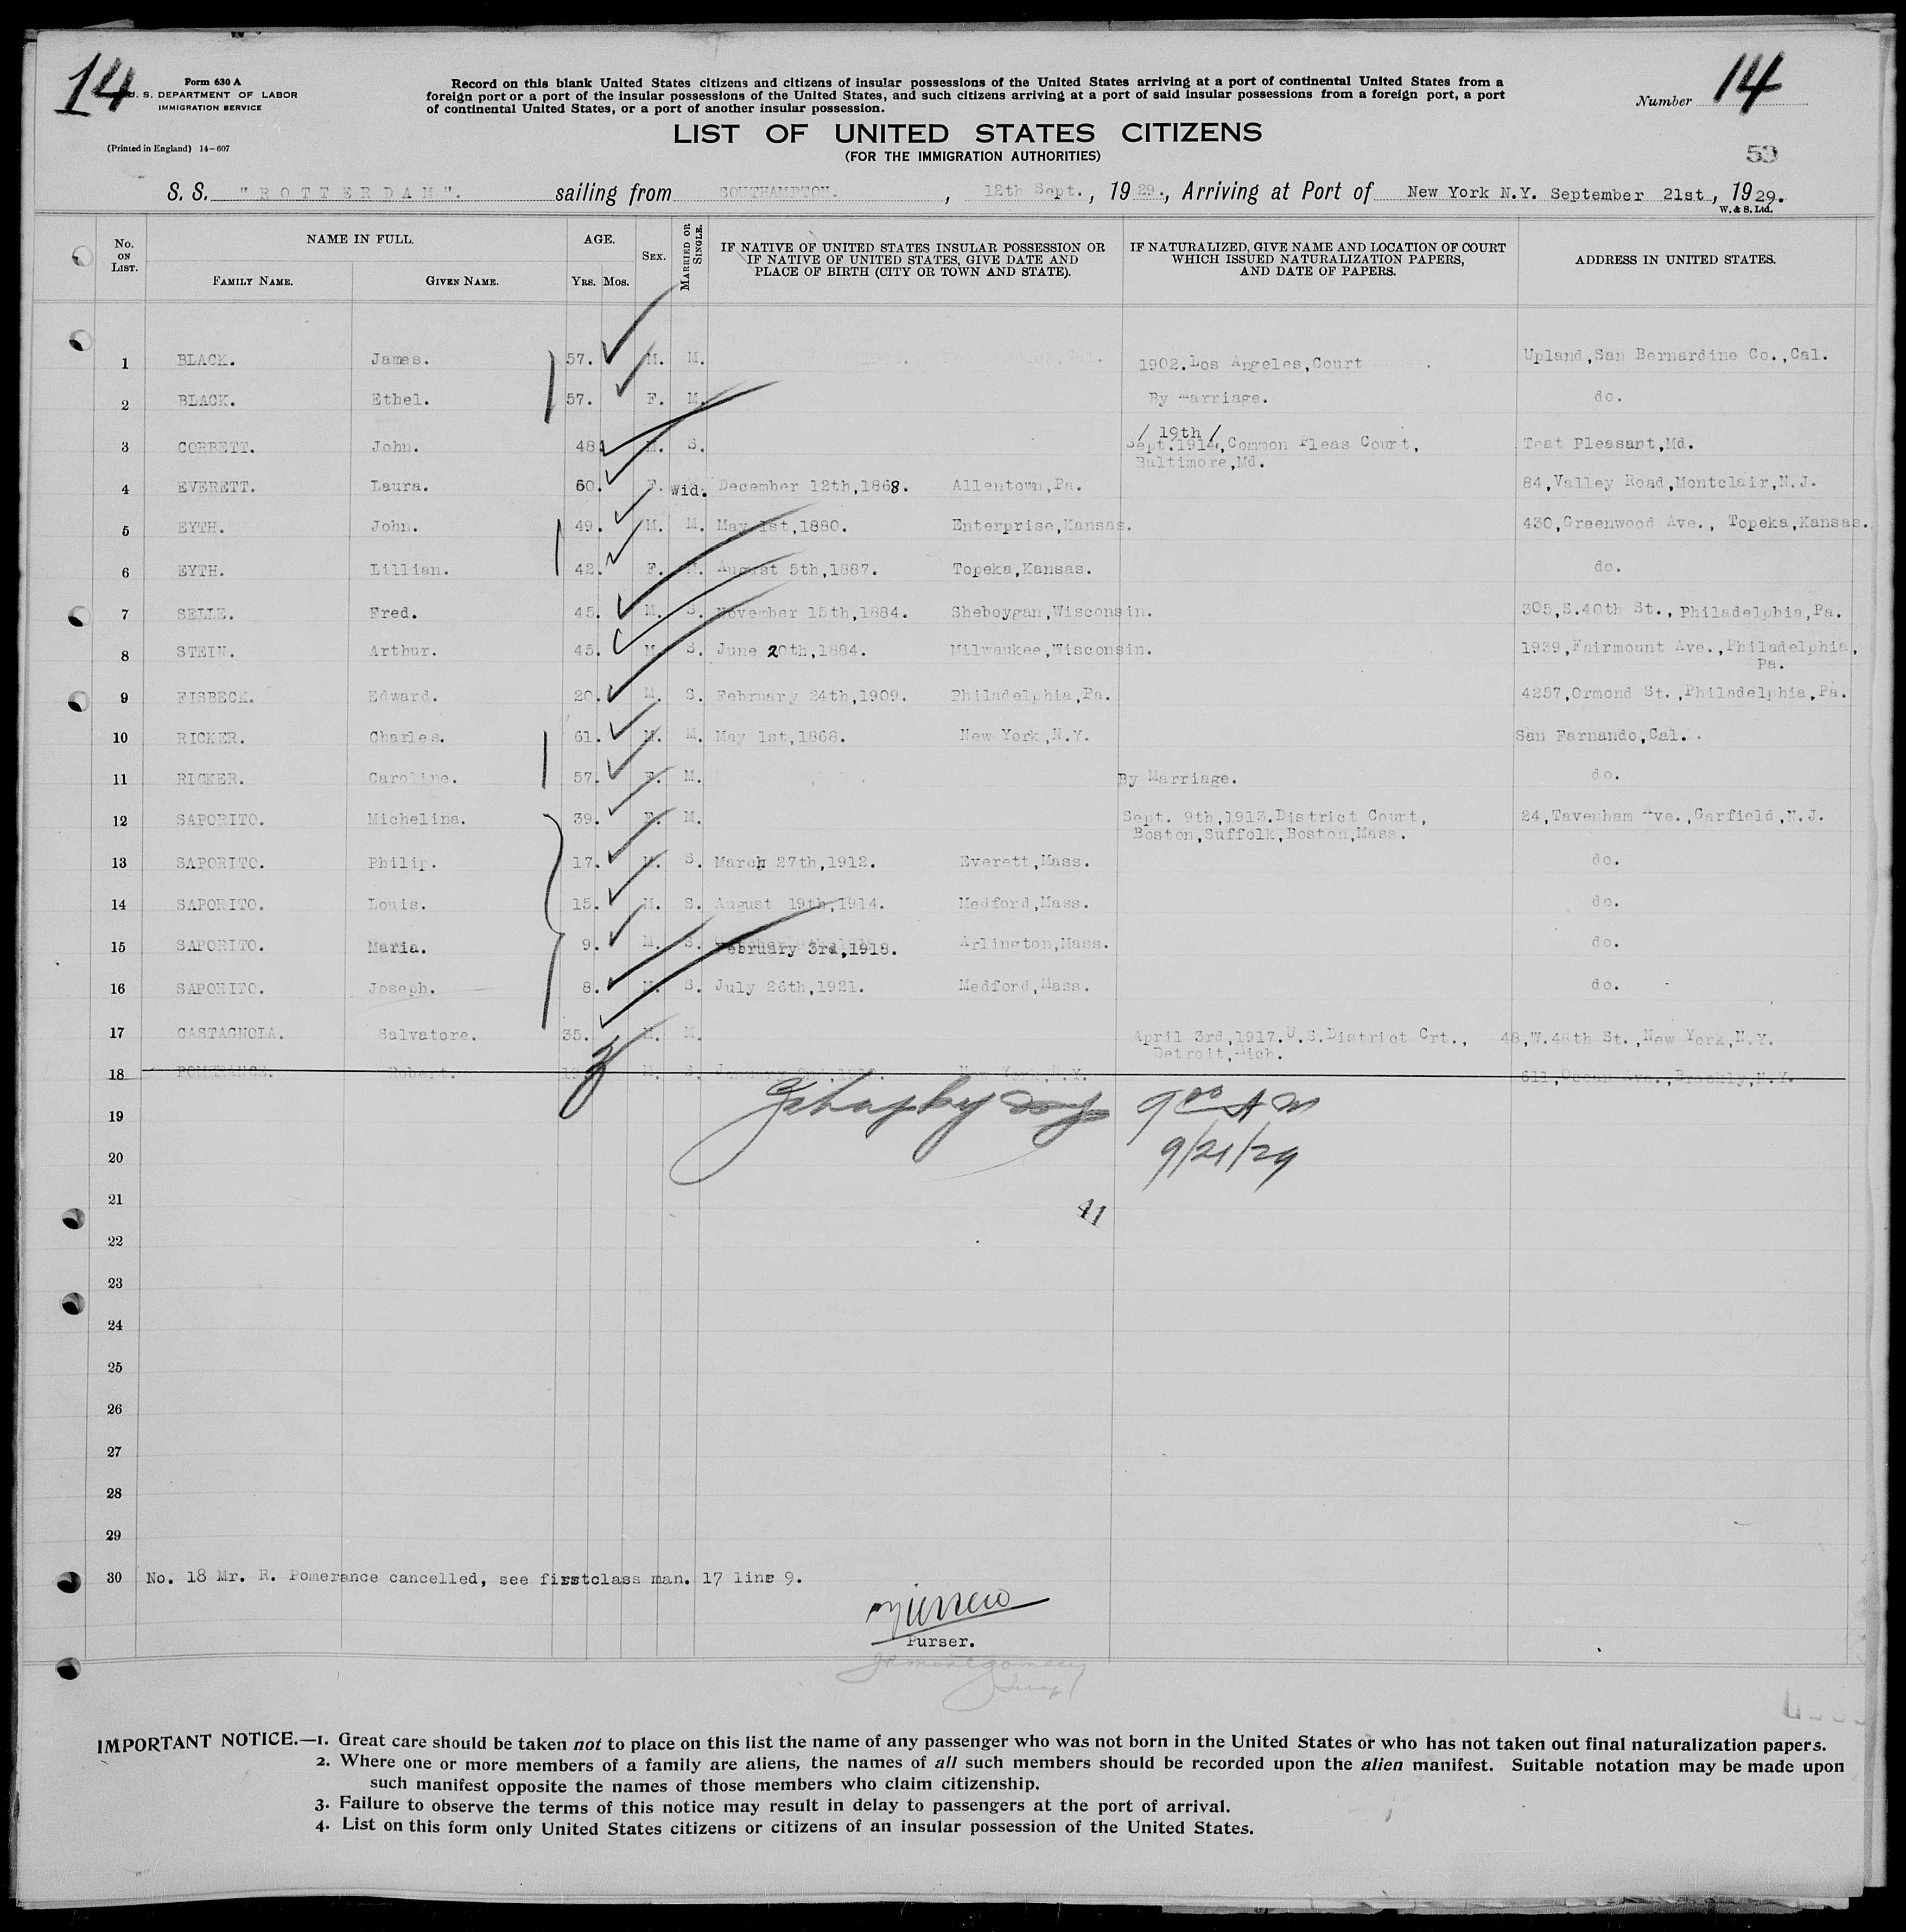 14
Form 630 A
U. S. DEPARTMENT OF LABOR
IMMIGRATION SERVICE
(Printed in England) 14-607
Record on this blank United States citizens and citizens of insular possessions of the United States arriving at a port of continental United States from a
foreign port or a port of the insular possessions of the United States, and such citizens arriving at a port of said insular possessions from a foreign port, a port
of continental United States, or a port of another insular possession.
Number 14
LIST OF UNITED STATES CITIZENS
(FOR THE IMMIGRATION AUTHORITIES)
53
S. S. "ROTTERDAM". sailing from SOUTHAMPTON. , 12th Sept., 1929., Arriving at Port of New York N.Y. September 21st, 1929.
W. & S. Ltd.
No. ON LIST. NAME IN FULL. AGE. SEX. MARRIED OR SINGLE. IF NATIVE OF UNITED STATES INSULAR POSSESSION OR IF NATIVE OF UNITED STATES, GIVE DATE AND PLACE OF BIRTH (CITY OR TOWN AND STATE). IF NATURALIZED, GIVE NAME AND LOCATION OF COURT WHICH ISSUED NATURALIZATION PAPERS, AND DATE OF PAPERS. ADDRESS IN UNITED STATES.
FAMILY NAME. GIVEN NAME. YRS. MOS.
1 BLACK. James. 57. M. M. 1902.Los Angeles,Court Upland,San Bernardine Co.,Cal.
2 BLACK. Ethel. 57. F. M. By Marriage. do.
/ 19th /
3 CORBETT. John. 48. M. S. Sept.1914,Common Pleas Court, Teat Pleasant,Md.
Baltimore,Md.
4 EVERETT. Laura. 60. F. Wid. December 12th,1868. Allentown,Pa. 84,Valley Road,Montclair,N.J.
5 EYTH. John. 49. M. M. May 1st,1880. Enterprise,Kansas. 430,Greenwood Ave., Topeka,Kansas.
6 EYTH. Lillian. 42. F. M. August 5th,1887. Topeka,Kansas. do.
7 SELLE. Fred. 45. M. S. November 15th,1884. Sheboygan,Wisconsin. 305,S.40th St., Philadelphia,Pa.
8 STEIN. Arthur. 45. M. S. June 20th,1884. Milwaukee,Wisconsin. 1939,Fairmount Ave.,Philadelphia,
Pa.
9 FISBECK. Edward. 20. M. S. February 24th,1909. Philadelphia,Pa. 4257,Ormond St.,Philadelphia,Pa.
10 RICKER. Charles. 61. M. M. May 1st,1868. New York,N.Y. San Farnando,Cal.
11 RICKER. Caroline. 57. F. M. By Marriage. do.
12 SAPORITO. Michelina. 39. F. M. Sept. 9th,1913.District Court, 24,Tavenham Ave.,Garfield,N.J.
Boston,Suffolk,Boston,Mass.
13 SAPORITO. Philip. 17. M. S. March 27th,1912. Everett,Mass. do.
14 SAPORITO. Louis. 15. M. S. August 19th,1914. Medford,Mass. do.
15 SAPORITO. Maria. 9. M. S. February 3rd,1918. Arlington,Mass. do.
16 SAPORITO. Joseph. 8. M. S. July 26th,1921. Medford,Mass. do.
17 CASTAGNOLA. Salvatore. 35. M. M. April 3rd,1917.U.S.District Crt., 48,W.48th St.,New York,N.Y.
Detroit,Mich.
18 POMERANCE. Robert. M. S. New York,N.Y. 611,Ocean Ave.,Brookly,N.Y.
19 9 00 AM
20 9/21/29
21 41
22
23
24
25
26
27
28
29
30 No. 18 Mr. R. Pomerance cancelled, see firstclass man. 17 line 9.
Purser.
IMPORTANT NOTICE.—1. Great care should be taken not to place on this list the name of any passenger who was not born in the United States or who has not taken out final naturalization papers.
2. Where one or more members of a family are aliens, the names of all such members should be recorded upon the alien manifest. Suitable notation may be made upon
such manifest opposite the names of those members who claim citizenship.
3. Failure to observe the terms of this notice may result in delay to passengers at the port of arrival.
4. List on this form only United States citizens or citizens of an insular possession of the United States.